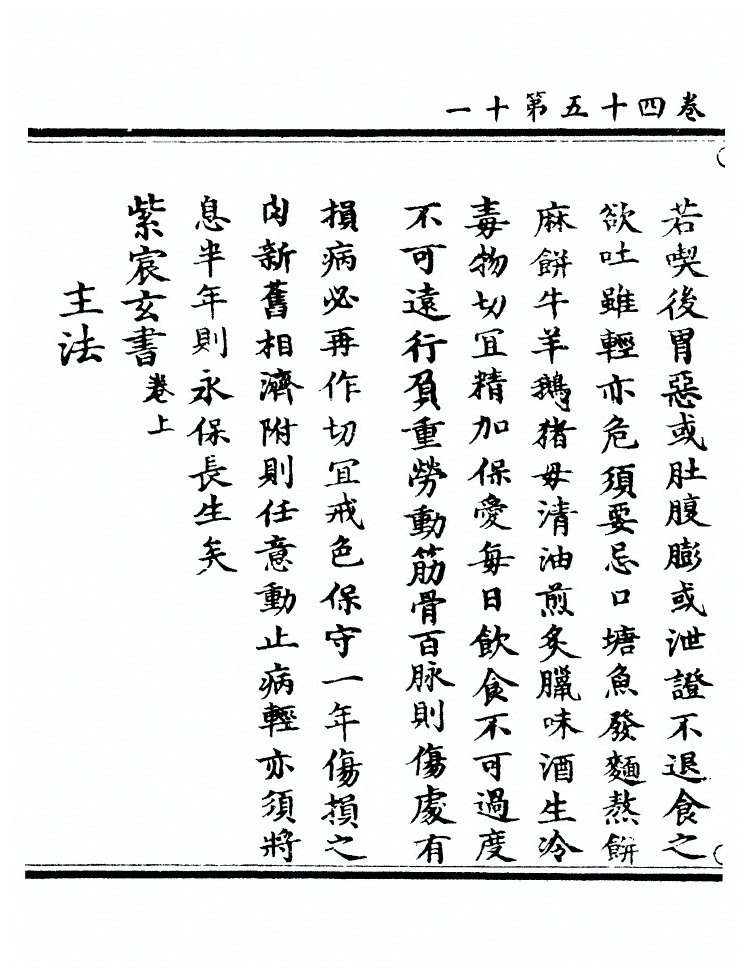 卷四十五第十一
若喫後胃惡或肚腹膨或泄證不退食之
欲吐雖輕亦危須要忌口塘魚發麵熬餅
麻餅牛羊鵝猪母清油煎炙臘味酒生冷
毒物切宜精加保愛每日飲食不可過度
不可遠行負重勞動筋骨百脉則傷處有
損病必再作切宜戒色保守一年傷損之
肉新舊相濟附則任意動止病輕亦須將
息半年則永保長生矣
紫宸玄書卷上
主法